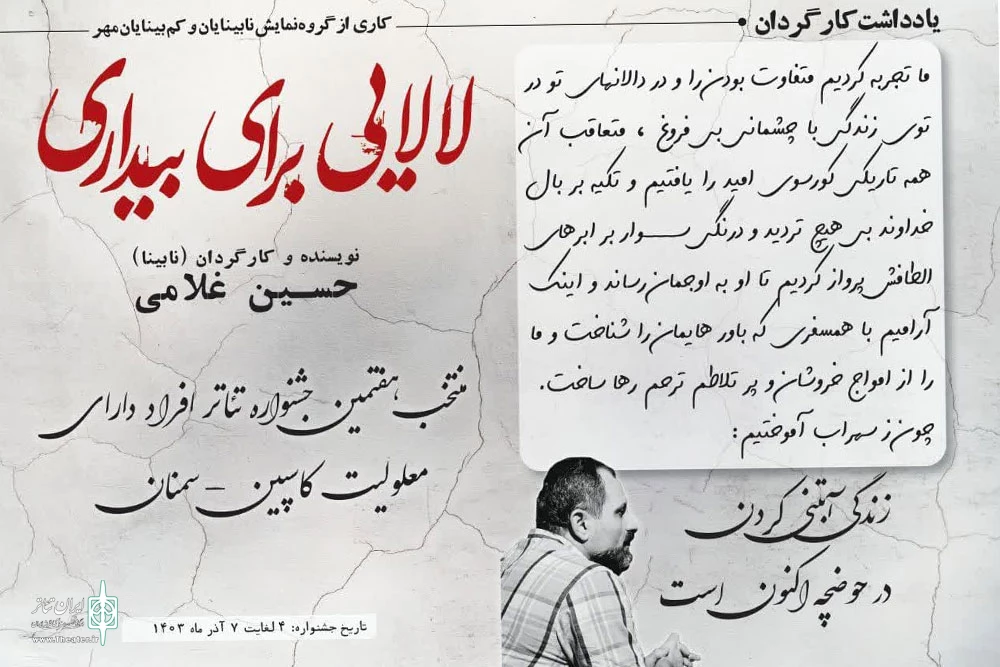 یادداشت کارگردان
کاری از گروه نمایش نابینایان و کم‌بینایان مهر
ما تجربه کردیم متفاوت بودن را و در دالانهای تو در
توی زندگی با چشمانی بی فروغ ، متعاقب آن
همه تاریکی کورسوی امید را یافتیم و تکیه بر بال
خداوند بی هیچ تردید و درنگی سوار بر ابرهای
الطافش پرواز کردیم تا او به اوجمان رساند و اینک
آرامیم با همسفری که باور هایمان را شناخت و ما
را از امواج خروشان و پر تلاطم ترحم رها ساخت.
چون ز سهراب آموختیم:
زندگی آبتنی کردن
در حوضچه اکنون است
لالایی برای بیداری
نویسنده و کارگردان (نابینا)
حسین غلامی
منتخب هفتمین جشنواره تئاتر افراد دارای
معلولیت کاسپین - سمنان
تاریخ جشنواره: ۴ لغایت ۷ آذر ماه ۱۴۰۳
ایران تئاتر
www.Theater.ir